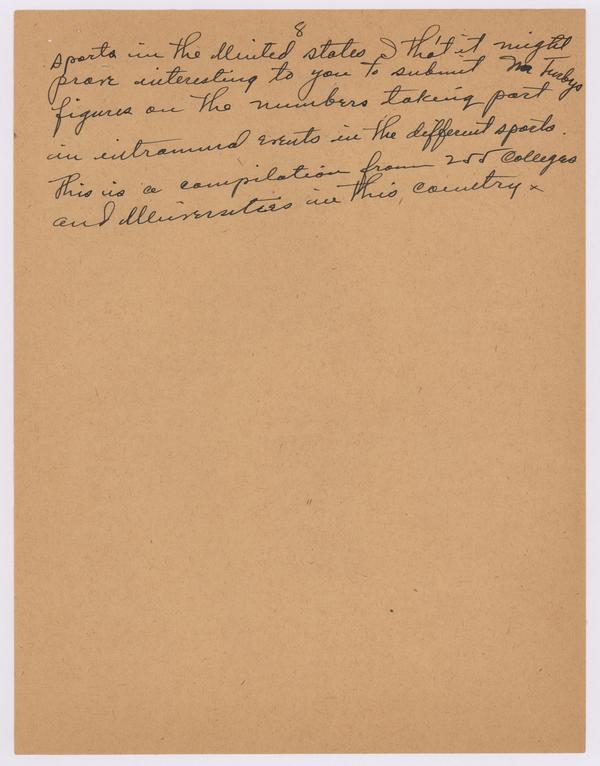 8
sports in the United states I tho't it might
prove interesting to you to submit Mr
figures on the numbers taking part
in intramural events in the different sports.
This is a compilation from 200 Colleges
and Universities in this country x